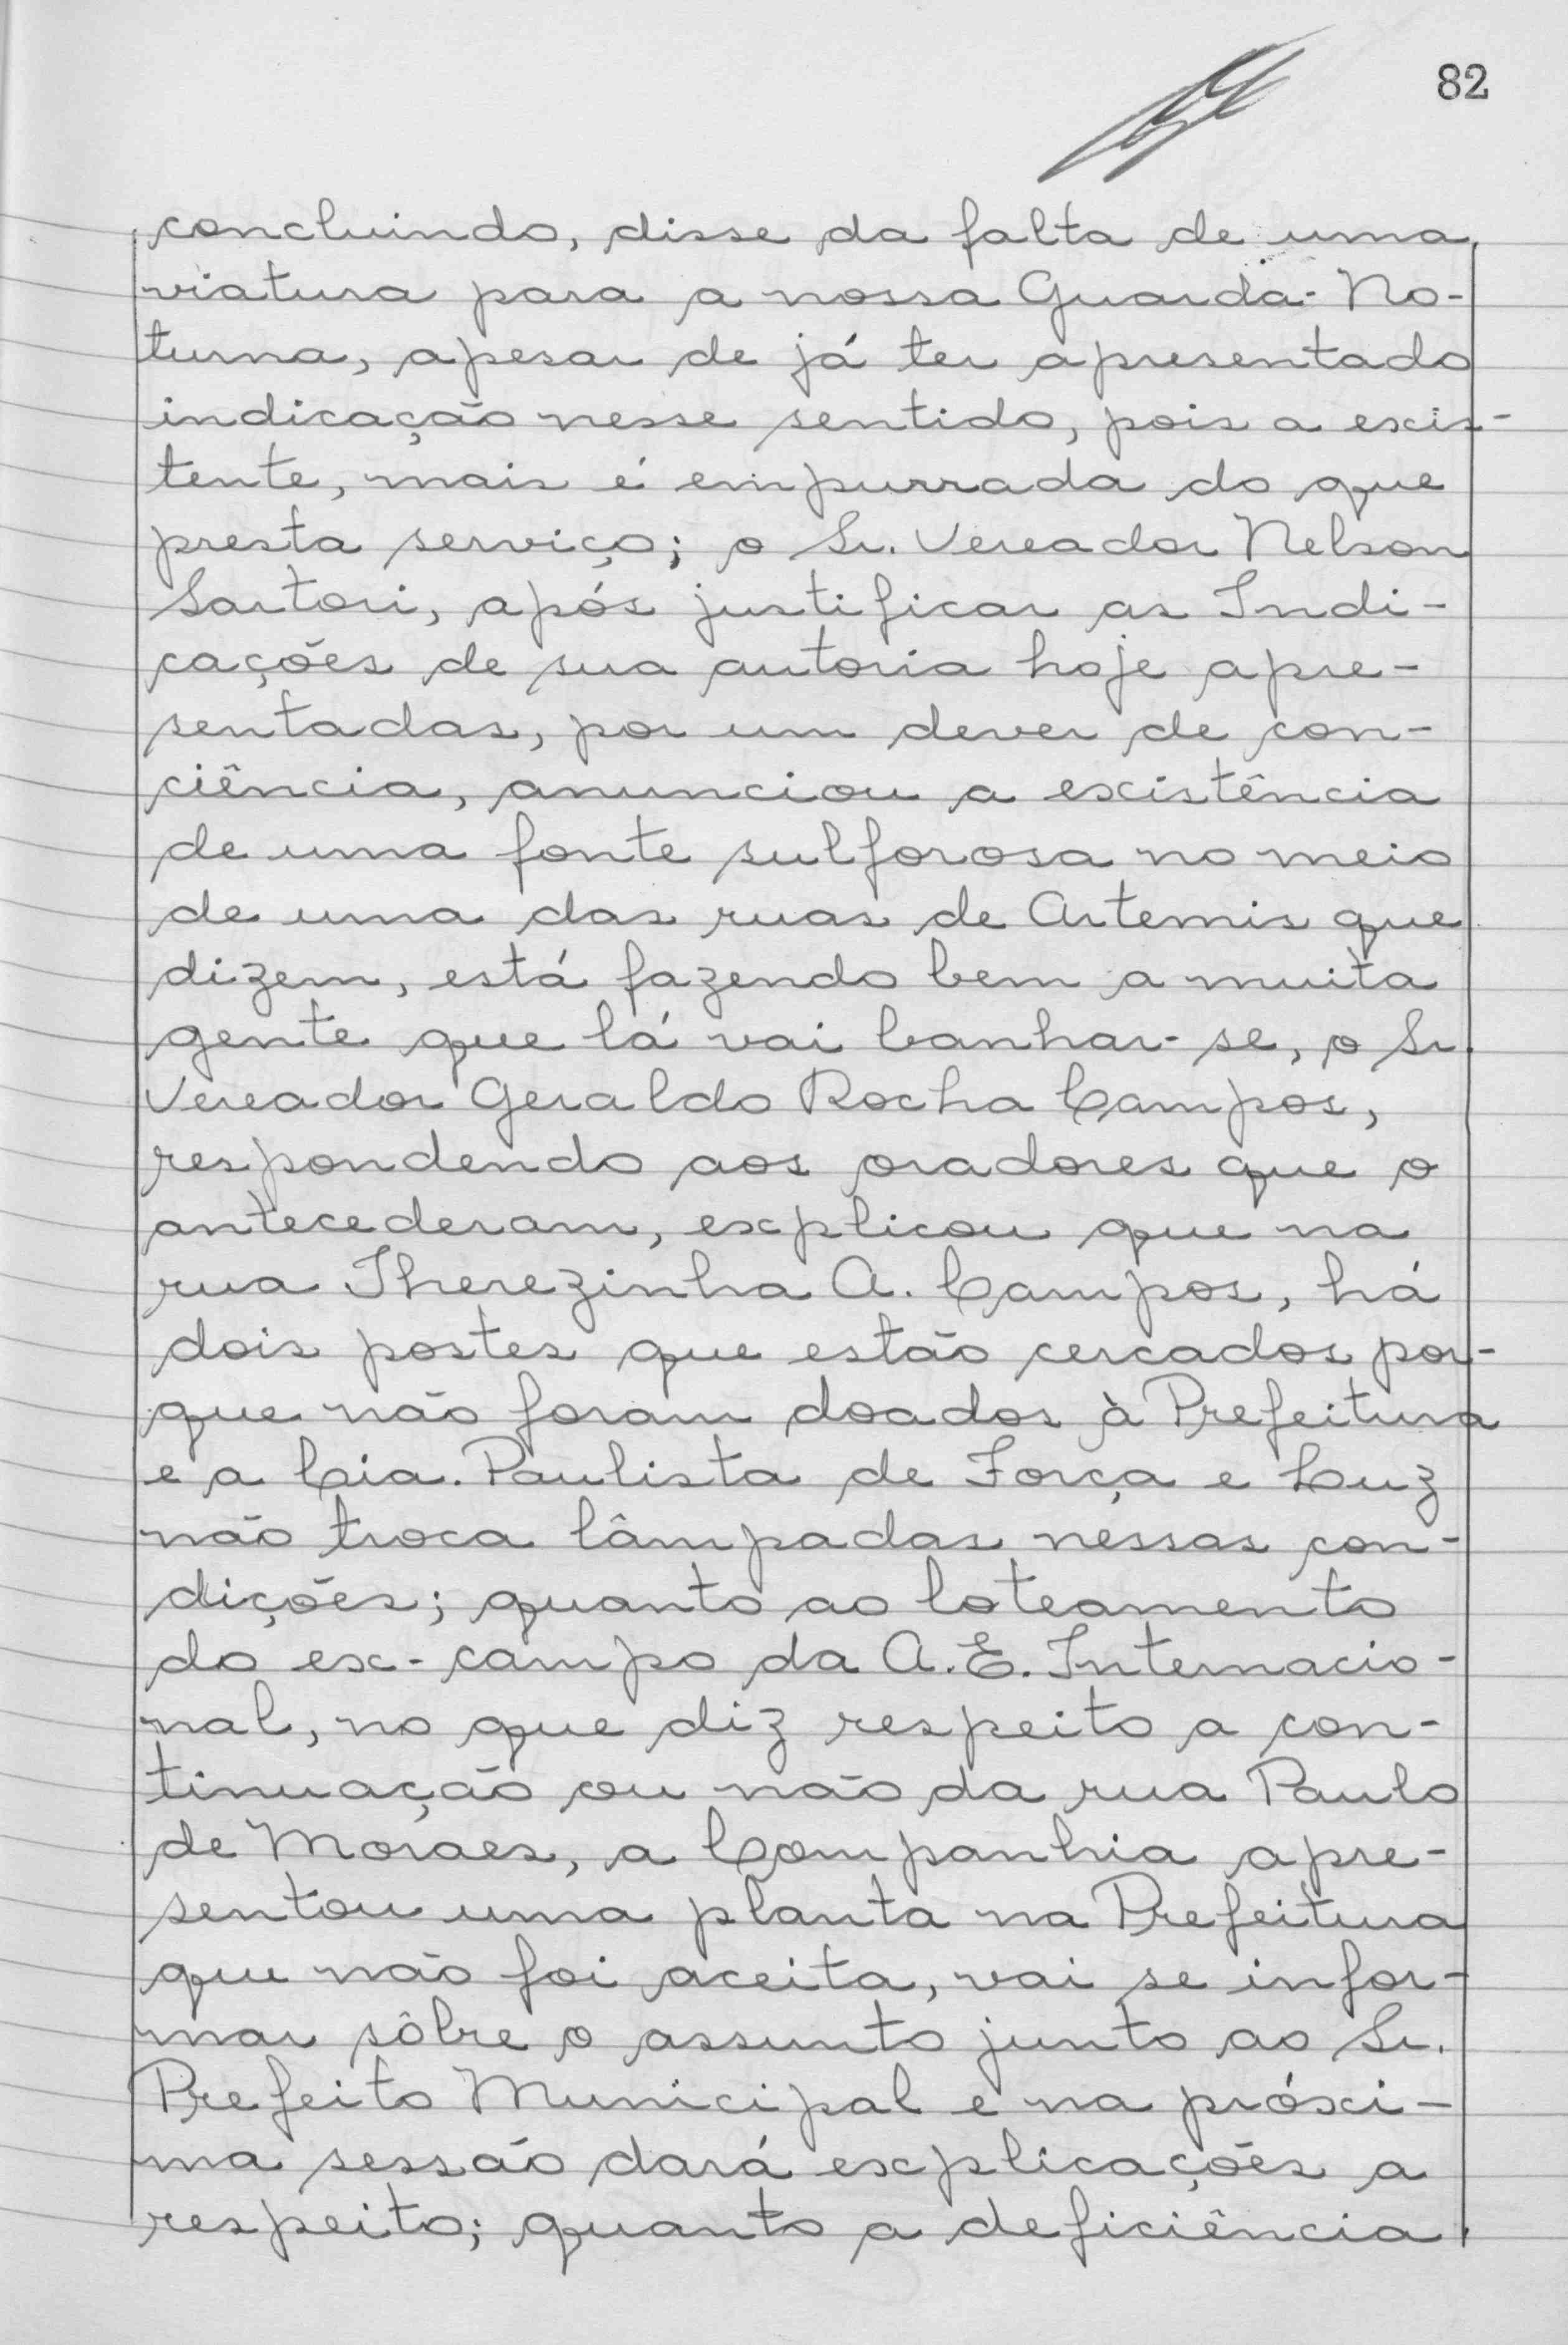 82
concluindo, disse da falta de uma
viatura para a nossa Guarda-No-
turna, apesar de já ter apresentado
indicação nesse sentido, pois a exis-
tente, mais é empurrada do que
presta serviço; o Sr. Vereador Nelson
Sartori, após justificar as Indi-
cações de sua autoria hoje apre-
sentadas, por um dever de con-
ciência, anunciou a existência
de uma fonte sulforosa no meio
de uma das ruas de Artemis que
dizem, está fazendo bem a muita
gente que lá vai banhar-se, o Sr.
Vereador Geraldo Rocha Campos,
respondendo aos oradores que o
antecederam, explicou que na
rua Therezinha A. Campos, há
dois postes que estão cercados por-
que não foram doados à Prefeitura
e a Cia. Paulista de Força e Luz
não troca lâmpadas nessas con-
dições; quanto ao loteamento
do ex-campo da A.E. Internacio-
nal, no que diz respeito a con-
tinuação ou não da rua Paulo
de Moraes, a Companhia apre-
sentou uma planta na Prefeitura
que não foi aceita, vai se infor-
mar sôbre o assunto junto ao Sr.
Prefeito Municipal e na próxi-
ma sessão dará explicações a
respeito; quanto a deficiência